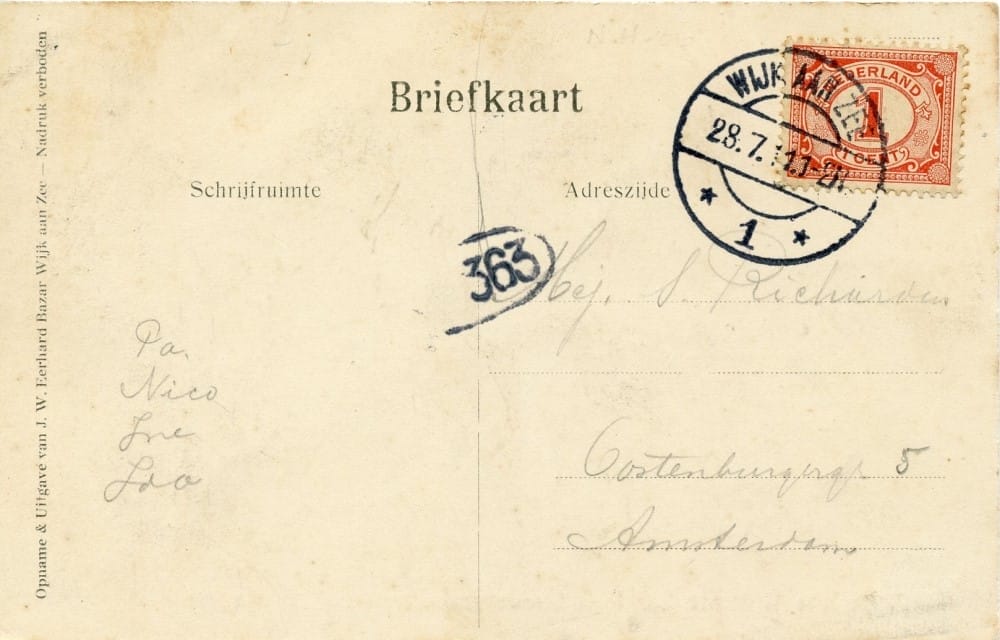 Opname & Uitgave van J. W. Eerhard Bazar Wijk aan Zee — Nadruk verboden
N.H.
Briefkaart
WIJK AAN ZEE
28.7.11.1-2N
1
NEDERLAND
1
1 CENT
Schrijfruimte
Adreszijde
363
Pa.
Nico
Ine
Loo
Mej. S. Richardson
Oostenburgergr 5
Amsterdam